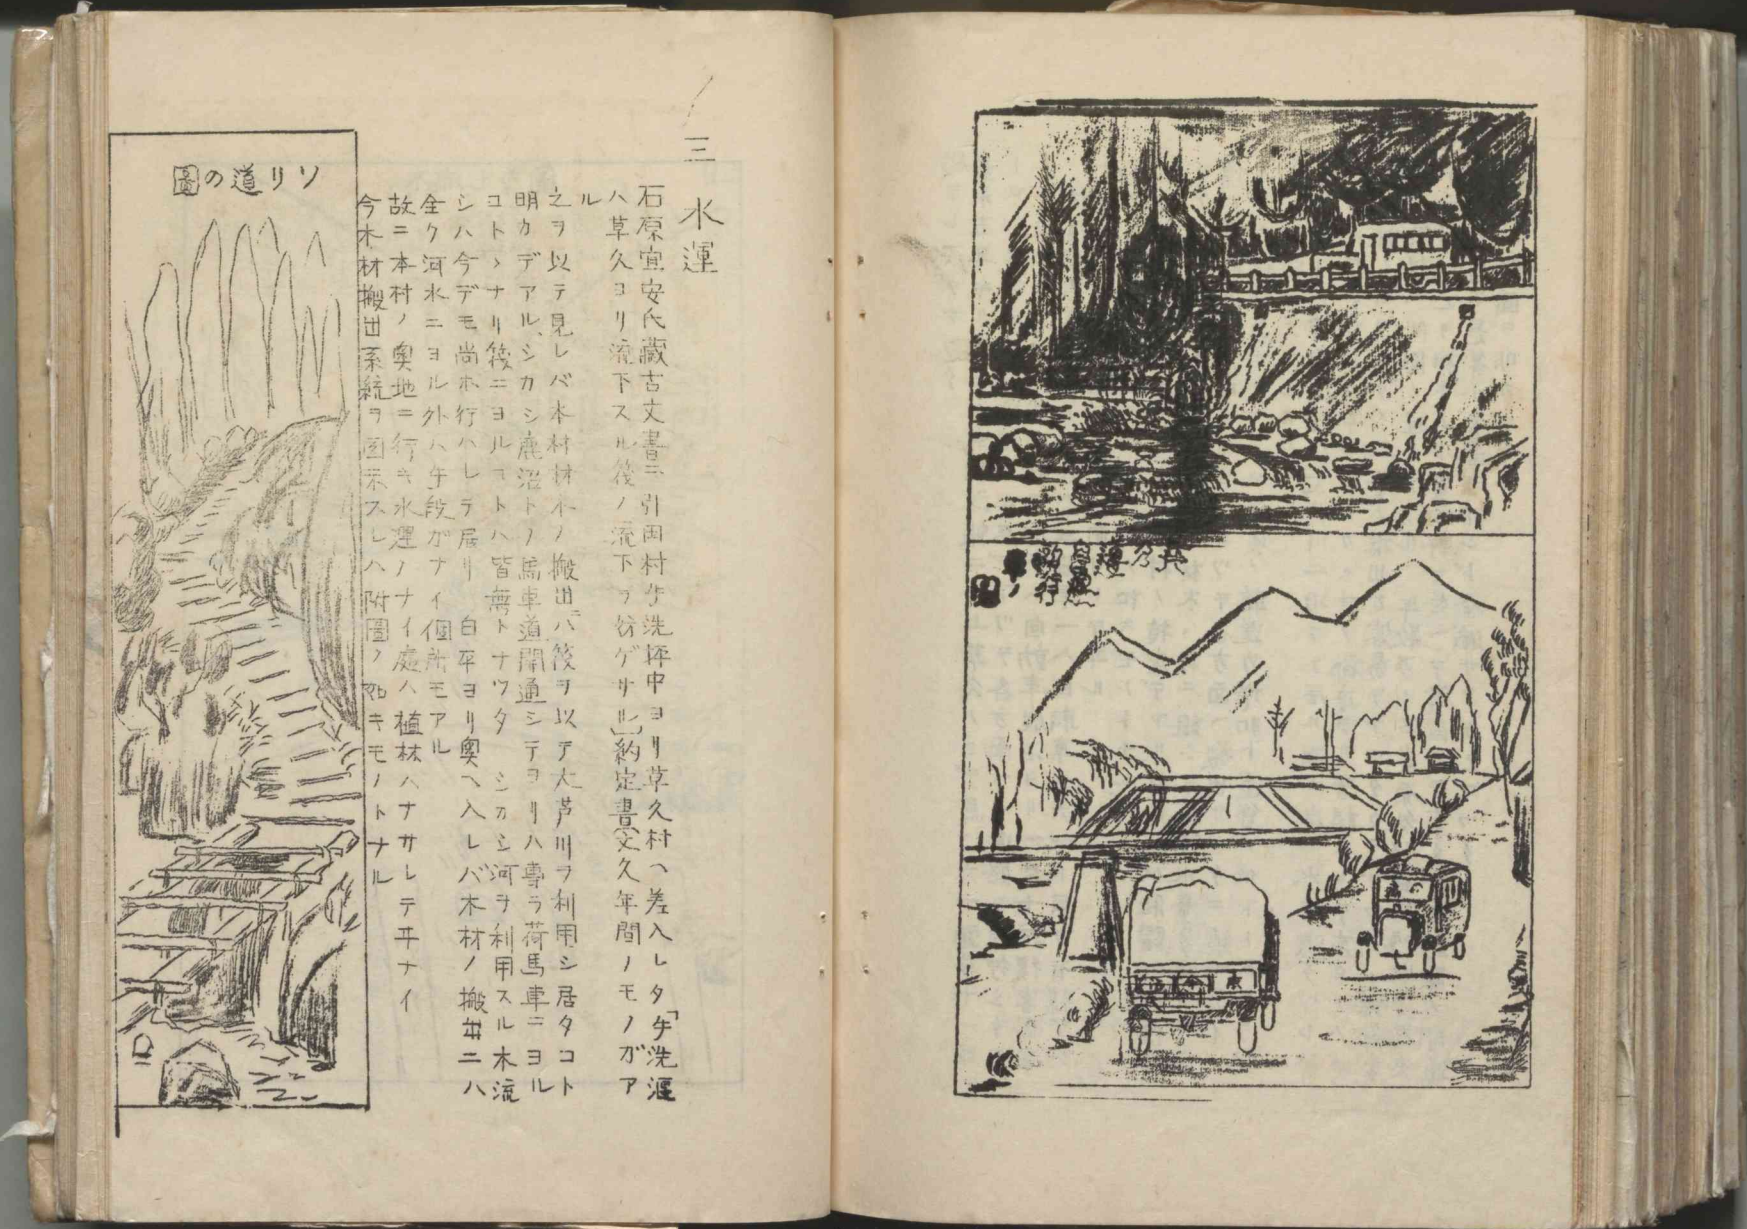 三 水運
石原宣安氏藏古文書ニ引田村字洗坪中ヨリ草久村ヘ差入レタ「字洗
ハ草久ヨリ流下スル筏ノ流下ヲ妨ゲザル」約定書文久年間ノモノガア
ル
之ヲ以テ見レバ本村材木ノ搬出ニハ筏ヲ以テ大芦川ヲ利用シ居タコト
明カデアル、シカシ鹿沼トノ馬車道開通シテヨリハ專ラ荷馬車ニヨル
コトヽナリ筏ニヨルコトハ皆無トナツタ シカシ河ヲ利用スル木流
シハ今デモ尚ホ行ハレテ居リ ヨリ奧ヘ入レバ木材ノ搬出ニハ
全ク河水ニヨル外ハ手段ガナイ個所モアル
故ニ本村ノ奧地ニ行キ水運ノナイ處ハ植林ハナサレテヰナイ
今木材搬出系統ヲ図示スレハ附圖ノ如キモノトナル
ソリ道の圖